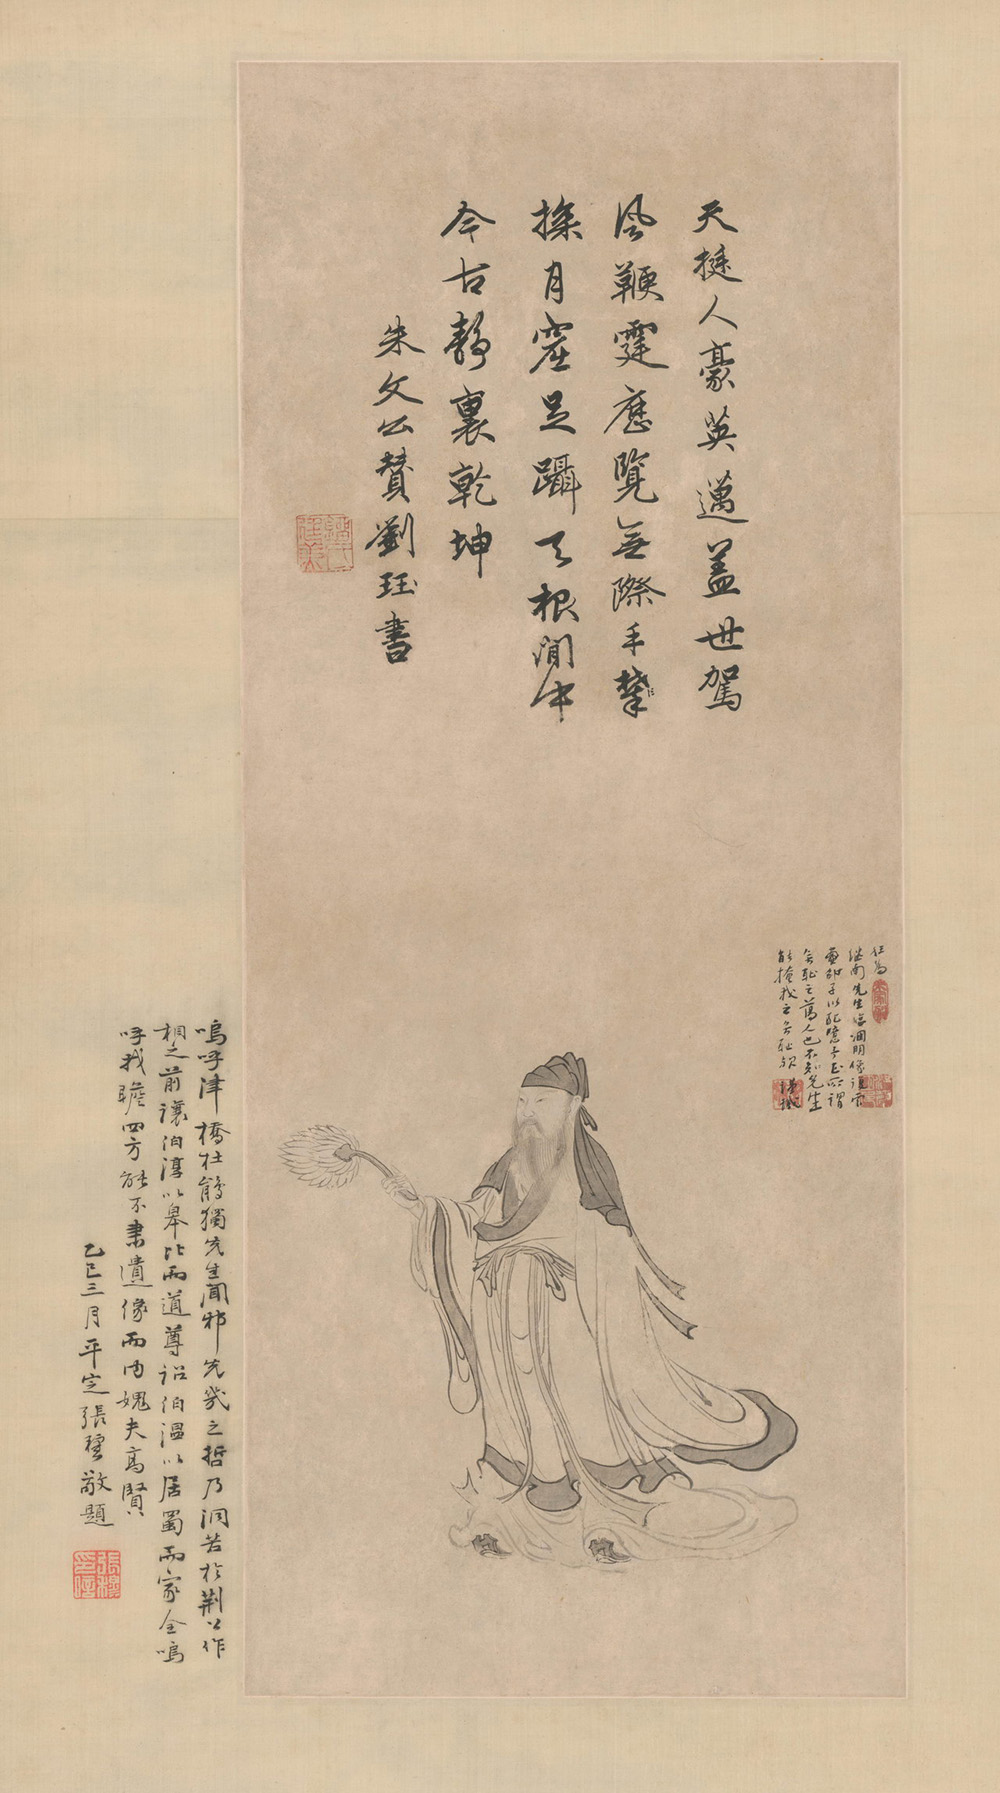 天挺人豪英邁盖世駕
風鞭霆歷覽無際手
探月窟足躡天根閒中
今古靜裏乾坤
朱文公贊劉珏書
繼南先生臨淵明像
能掩我之
嗚呼津橋杜鵑獨先生聞邪先幾之哲乃洞若於荆公作
相之前讓伯淳以皋比而道尊詔伯溫以居蜀而家全嗚
呼我瞻四方能不肅遺像而內媿夫高賢
乙巳三月平定張穆敬題